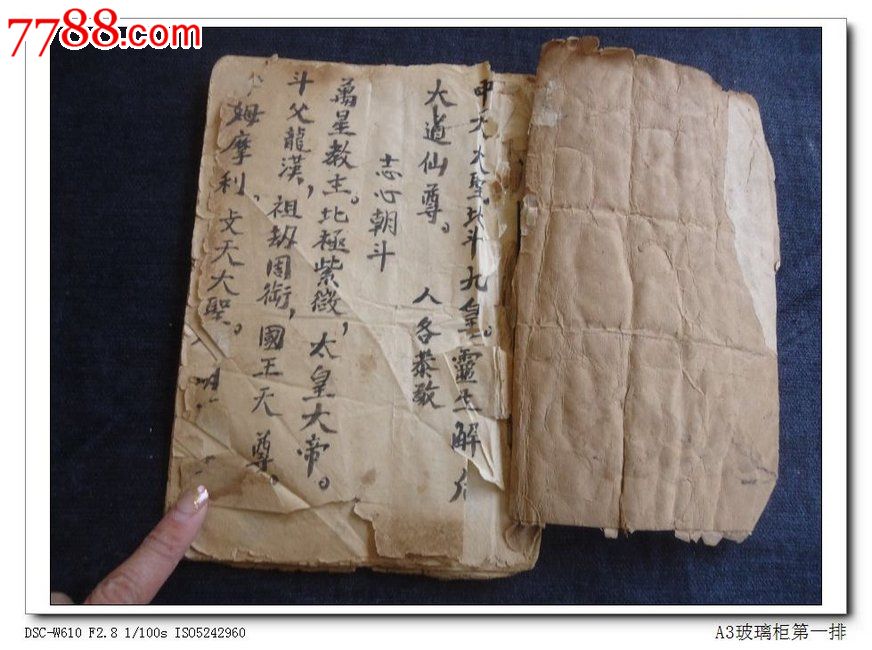 7788.com
中天大聖。北斗九皇。靈王解厄
大道仙尊。
人各恭敬
志心朝斗
萬星教主。北極紫微，太皇大帝。
斗父龍漢，祖劫周術，國王天尊。
姆摩利，攴天大聖。
DSC-W610 F2.8 1/100s ISO5242960
A3玻璃柜第一排